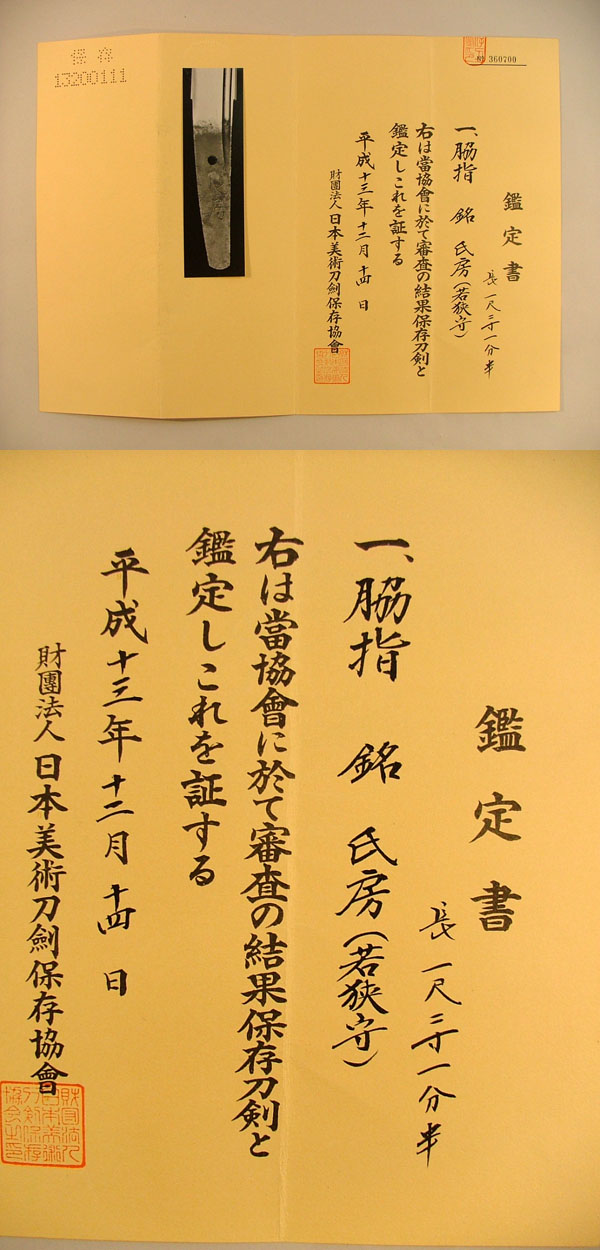 保存
13200111
No 360700
鑑定書
長一尺三寸一分半
一、脇指 銘 氏房(若狭守)
右は當協會に於て審査の結果保存刀剣と
鑑定しこれを証する
平成十三年十二月十四日
財團法人日本美術刀劍保存協會
鑑定書
長一尺三寸一分半
一、脇指 銘 氏房(若狭守)
右は當協會に於て審査の結果保存刀剣と
鑑定しこれを証する
平成十三年十二月十四日
財團法人日本美術刀劍保存協會